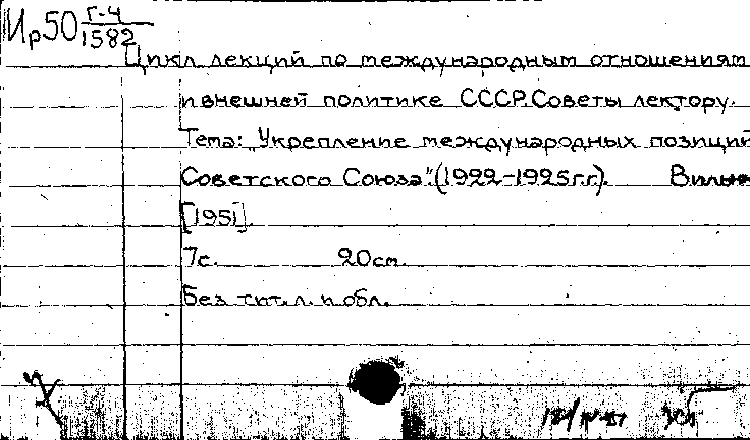 Ир50 Г-4/1582
Цикл лекций по международным отношениям
и внешней политике СССР. Советы лектору.
Тема: "Укрепление международных позиций
Советского Союза". (1922-1925 г.г.). Вильн
[1951].
7 с. 20 см.
Без тит. л. и обл.